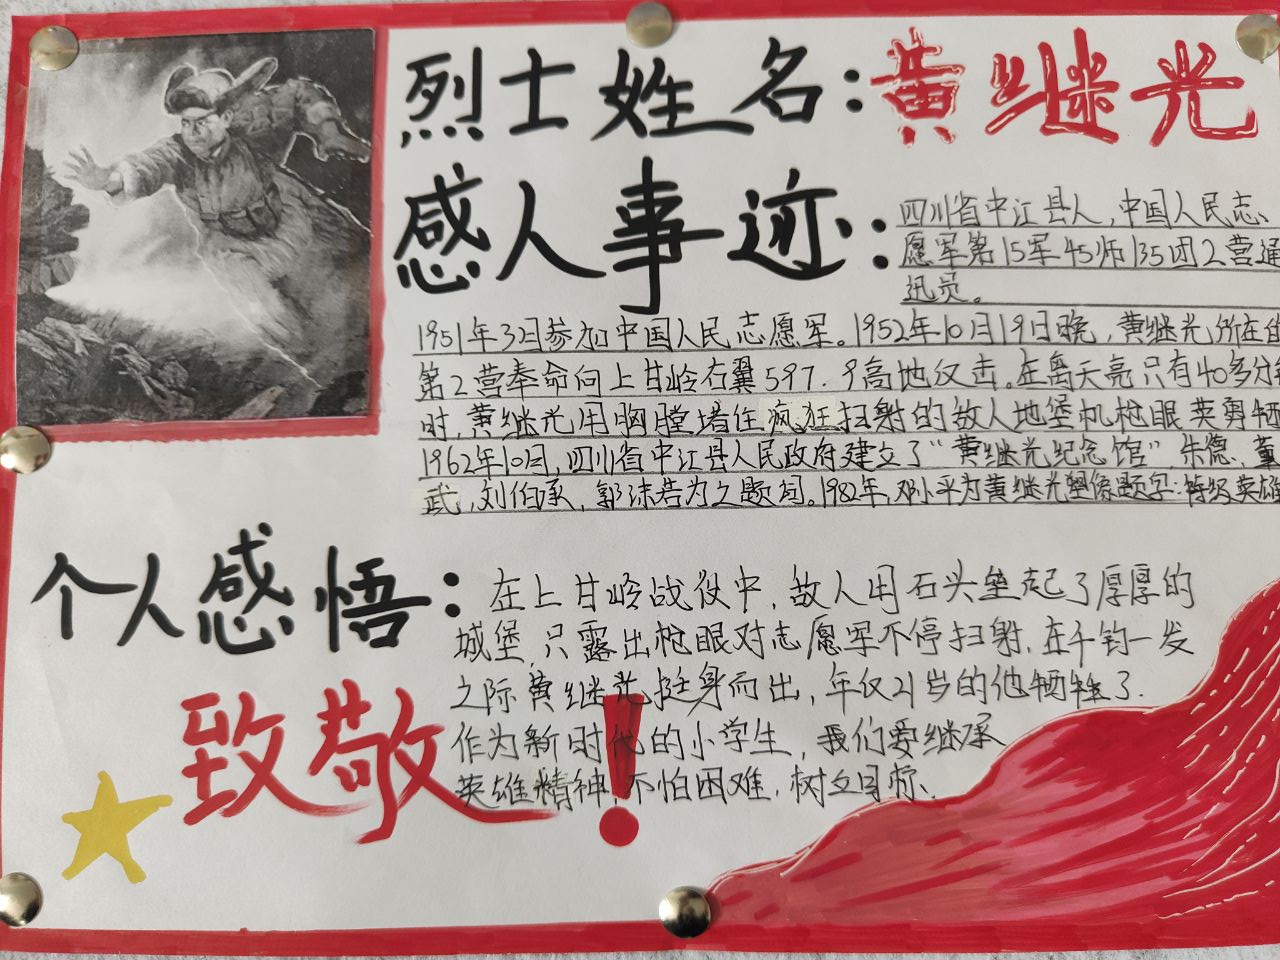 烈士姓名:黄继光
感人事迹:
四川省中江县人,中国人民志
愿军第15军45师135团2营通
迅员。
1951年3日参加中国人民志愿军。1952年10月19日晚,黄继光所在的
第2营奉命向上甘岭右翼597.9高地仅击。在离天亮只有40多分
时,黄继光用胸膛堵住疯狂扫射的敌人地堡机枪眼英勇牺
1962年10月,四川省中江县人民政府建立了“黄继光纪念馆”,朱德、董
武,刘伯承,郭沫若为之题词。1982年,邓小平为黄继光塑像题字:特级英雄
个人感悟:
在上甘岭战役中,敌人用石头垒起了厚厚的
城堡,只露出枪眼对志愿军不停扫射,在千钧一发
之际黄继光挺身而出,年仅21岁的他牺牲了.
作为新时代的小学生,我们要继承
英雄精神,不怕困难,树立目标.
致敬!